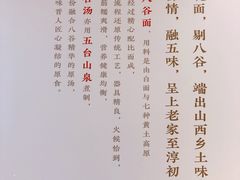 面，剔八谷，端出山西乡土味
情，融五味，呈上老家至淳初
八谷面，用料是由白面与七种黄土高原
经过精心配比而成，
流程还原传统工艺，器具精良，火候恰到
筋糯爽滑，营养健康均衡。
汤亦用五台山泉煮制，
份融合八谷精华的原汤，
味晋人匠心凝结的原食。